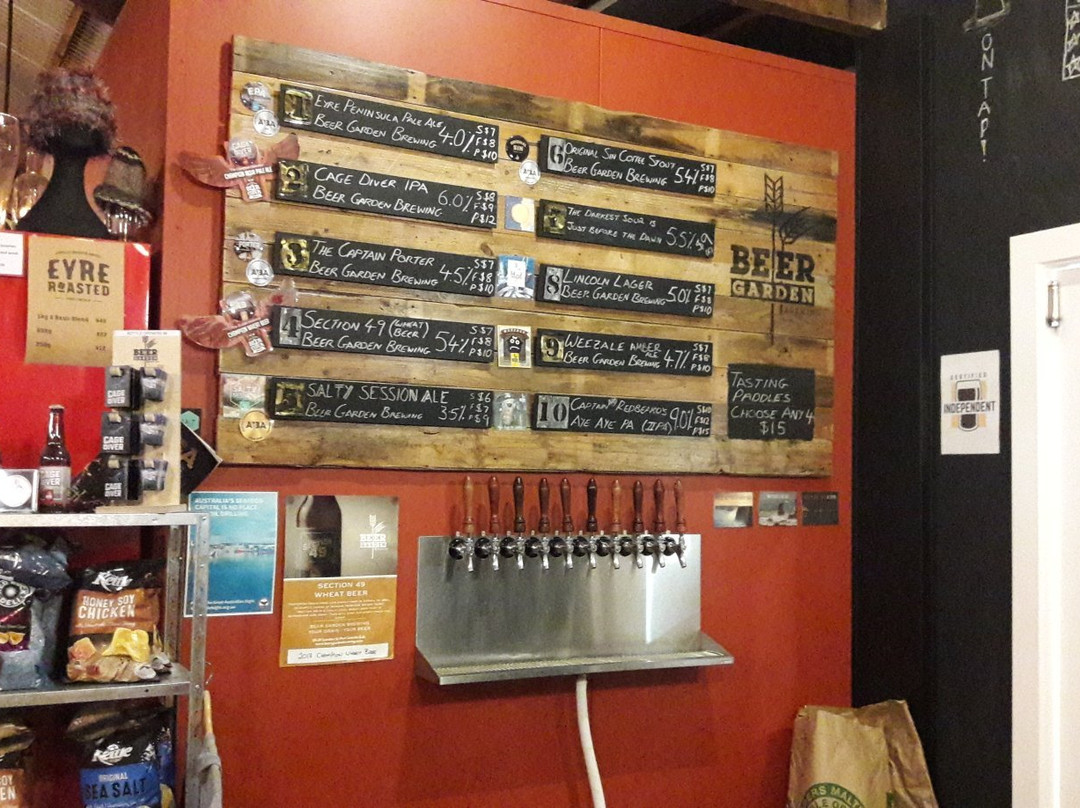 ON TAP!
EPA
AIBA
1
EYRE PENINSULA PALE ALE
BEER GARDEN BREWING
4.0%
S $7
F $8
P $10
CAGE DIVER
CHAMPION INDIA PALE ALE
2
CAGE DIVER IPA
BEER GARDEN BREWING
6.0%
S $8
F $9
P $12
PORTER
AIBA
3
THE CAPTAIN PORTER
BEER GARDEN BREWING
4.5%
S $7
F $8
P $10
CHAMPION WHEAT BEER
4
SECTION 49 (WHEAT BEER)
BEER GARDEN BREWING
5.4%
S $7
F $8
P $10
AIBA
5
SALTY SESSION ALE
BEER GARDEN BREWING
3.5%
S $6
F $7
P $9
6
ORIGINAL SIN COFFEE STOUT
BEER GARDEN BREWING
5.4%
S $7
F $8
P $10
THE DARKEST SOUR IS
JUST BEFORE THE DAWN
5.5%
8
LINCOLN LAGER
BEER GARDEN BREWING
5.0%
S $7
F $8
P $10
9
WEEZALE AMBER ALE
BEER GARDEN BREWING
4.7%
S $7
F $8
P $10
10
CAPTAIN REDBEARD'S
AYE AYE PA (IIPA)
9.0%
S $10
F $12
P $15
BEER
GARDEN
BREWING
TASTING
PADDLES
CHOOSE ANY 4
$15
EYRE
ROASTED
BEER
GARDEN
CAGE
DIVER
CAGE
DIVER
CAGE
DIVER
CERTIFIED
INDEPENDENT
AUSTRALIA'S SEAFOOD
CAPITAL IS NO PLACE
DRILLING
49
BEER
GARDEN
SECTION 49
WHEAT BEER
2017 CHAMPION WHEAT BEER
Kettle
HONEY SOY
CHICKEN
Kettle
ORIGINAL
SEA SALT